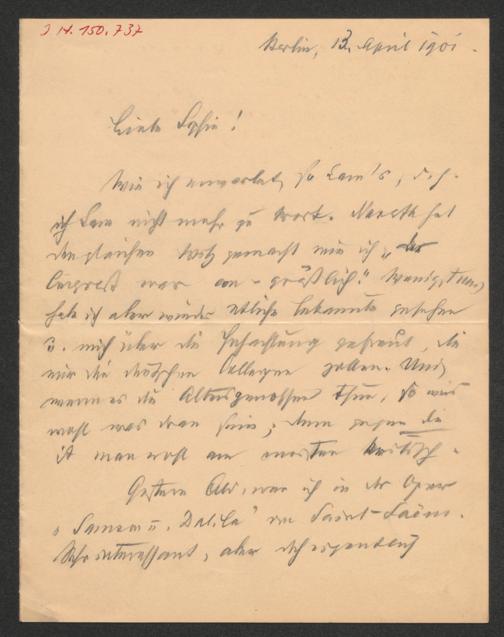 J.N. 150.737
Berlin, 13. April 1901.
Liebe Sophie!
Wie ich erwartet, so kam's, d. h.
ich kam nicht mehr zu Wort. Noorth hat
den gleichen Witz gemacht wie ich „der
Congress war con-gräßlich!" Wenigstens
habe ich aber wieder etliche Bekannte gesehen
u. mich über die Hochachtung gefreut, die
mir die deutschen Collegen zollen. Und
wenn es die Altersgenossen thun, so muß
wohl was dran sein; denn gegen die
ist man wohl am meisten kritisch.
Gestern Abd. war ich in der Oper
„Samson u. Dalila" von Saint-Saëns.
Sehr interessant, aber doch eigentlich